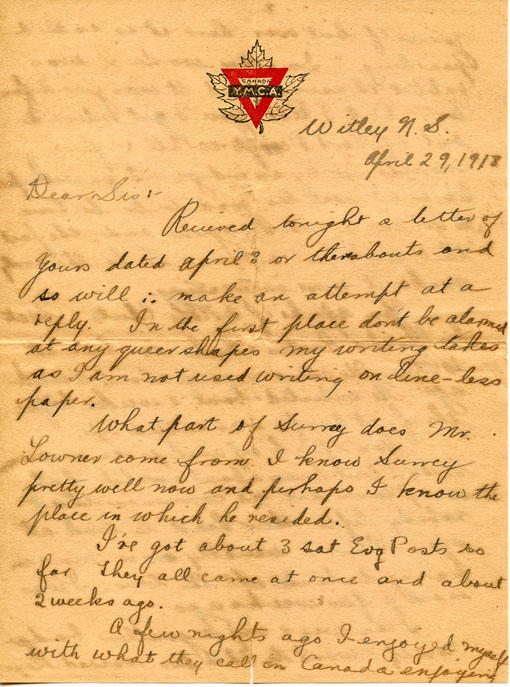 CANADA
Y.M.C.A.
Witley N. S.
April 29, 1918
Dear Sis:-
Recived tonight a letter of
yours dated April 3 or therabouts and
so will :. make an attempt at a
reply. In the first place dont be alarmed
at any queer shapes my writing takes
as I am not used writing on line-less
paper.
What part of Surrey does Mr.
Lowner come from. I know Surrey
pretty well now and perhaps I know the
place in which he resided.
I've got about 3 sat Evg Posts so
far. They all came at once and about
2 weeks ago.
A few nights ago I enjoyed myself
with what they call in Canada enjoying